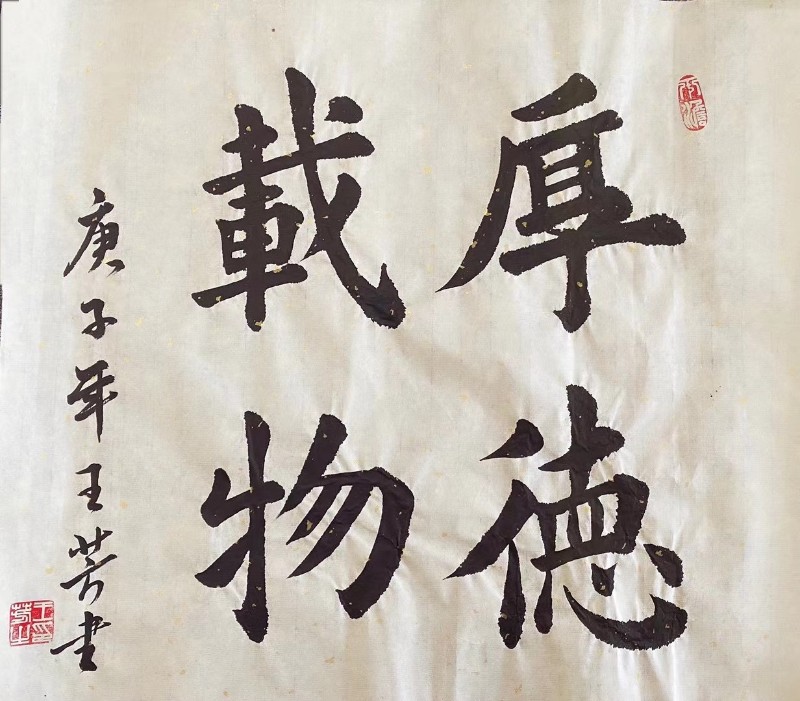 厚德
載物
庚子年王芳书